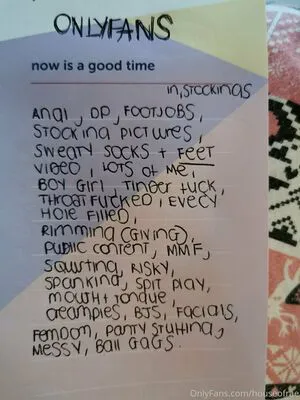 ONLYFANS
now is a good time
in, STOCKINGS
ANAl, DP, FOOTJOBS,
STOCKING PICTURES,
SWEATY SOCKS + FEET
VIDEO, LOTS OF ME,
BOY GIRL, TINDER FUCK,
THROAT FUCKED, EVERY
HOLE FILLED,
RIMMING (GIVING),
PUBLIC CONTENT, MMF,
SQUIRTING, RISKY,
SPANKING, SPIT PLAY,
MOUTH + TONGUE,
CREAMPIES, BJS, FACIALS,
FEMDOM, PANTY STUFFING,
MESSY, BALL GAGS.
OnlyFans.com/houseofrae